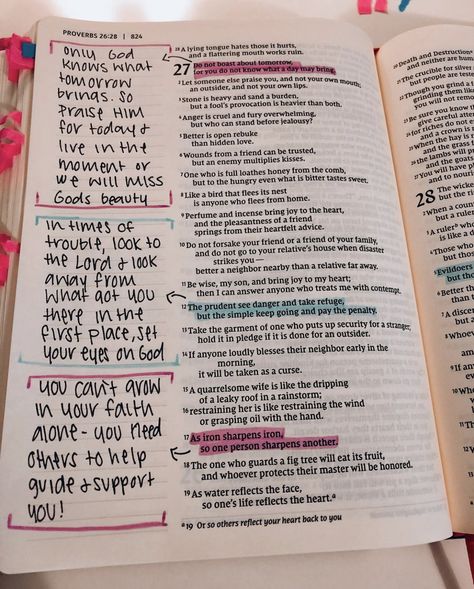 PROVERBS 26:28 | 824
only God
knows what
tomorrow
brings. so
praise Him
for today &
live in the
moment or
we will miss
Gods beauty
in times of
trouble, look to
the Lord & look
away from
what got you
there in the
first place, set
your eyes on God
you can't grow
in your faith
alone - you need
others to help
guide & support
you!
28 A lying tongue hates those it hurts,
and a flattering mouth works ruin.
27 Do not boast about tomorrow,
for you do not know what a day may bring.
2 Let someone else praise you, and not your own mouth;
an outsider, and not your own lips.
3 Stone is heavy and sand a burden,
but a fool's provocation is heavier than both.
4 Anger is cruel and fury overwhelming,
but who can stand before jealousy?
5 Better is open rebuke
than hidden love.
6 Wounds from a friend can be trusted,
but an enemy multiplies kisses.
7 One who is full loathes honey from the comb,
but to the hungry even what is bitter tastes sweet.
8 Like a bird that flees its nest
is anyone who flees from home.
9 Perfume and incense bring joy to the heart,
and the pleasantness of a friend
springs from their heartfelt advice.
10 Do not forsake your friend or a friend of your family,
and do not go to your relative's house when disaster
strikes you—
better a neighbor nearby than a relative far away.
11 Be wise, my son, and bring joy to my heart;
then I can answer anyone who treats me with contempt.
12 The prudent see danger and take refuge,
but the simple keep going and pay the penalty.
13 Take the garment of one who puts up security for a stranger;
hold it in pledge if it is done for an outsider.
14 If anyone loudly blesses their neighbor early in the
morning,
it will be taken as a curse.
15 A quarrelsome wife is like the dripping
of a leaky roof in a rainstorm;
16 restraining her is like restraining the wind
or grasping oil with the hand.
17 As iron sharpens iron,
so one person sharpens another.
18 The one who guards a fig tree will eat its fruit,
and whoever protects their master will be honored.
19 As water reflects the face,
so one's life reflects the heart.a
a 19 Or so others reflect your heart back to you
20 Death and Destruction
and neither are
21 The crucible for silver
but people are
22 Though you grind
grinding them like
you will not
23 Be sure you know
give careful
24 for riches do not
and a crown is
25 When the hay is
and the grass
26 the lambs will
and the goats
27 You will have
and to
28 The wicked
but the
2 When a
but a
3 A ruler
is like a
4 Those
but
5 Evildoers
but
6 Better the
than
7 A
but a
8 Whoever
9 If
10